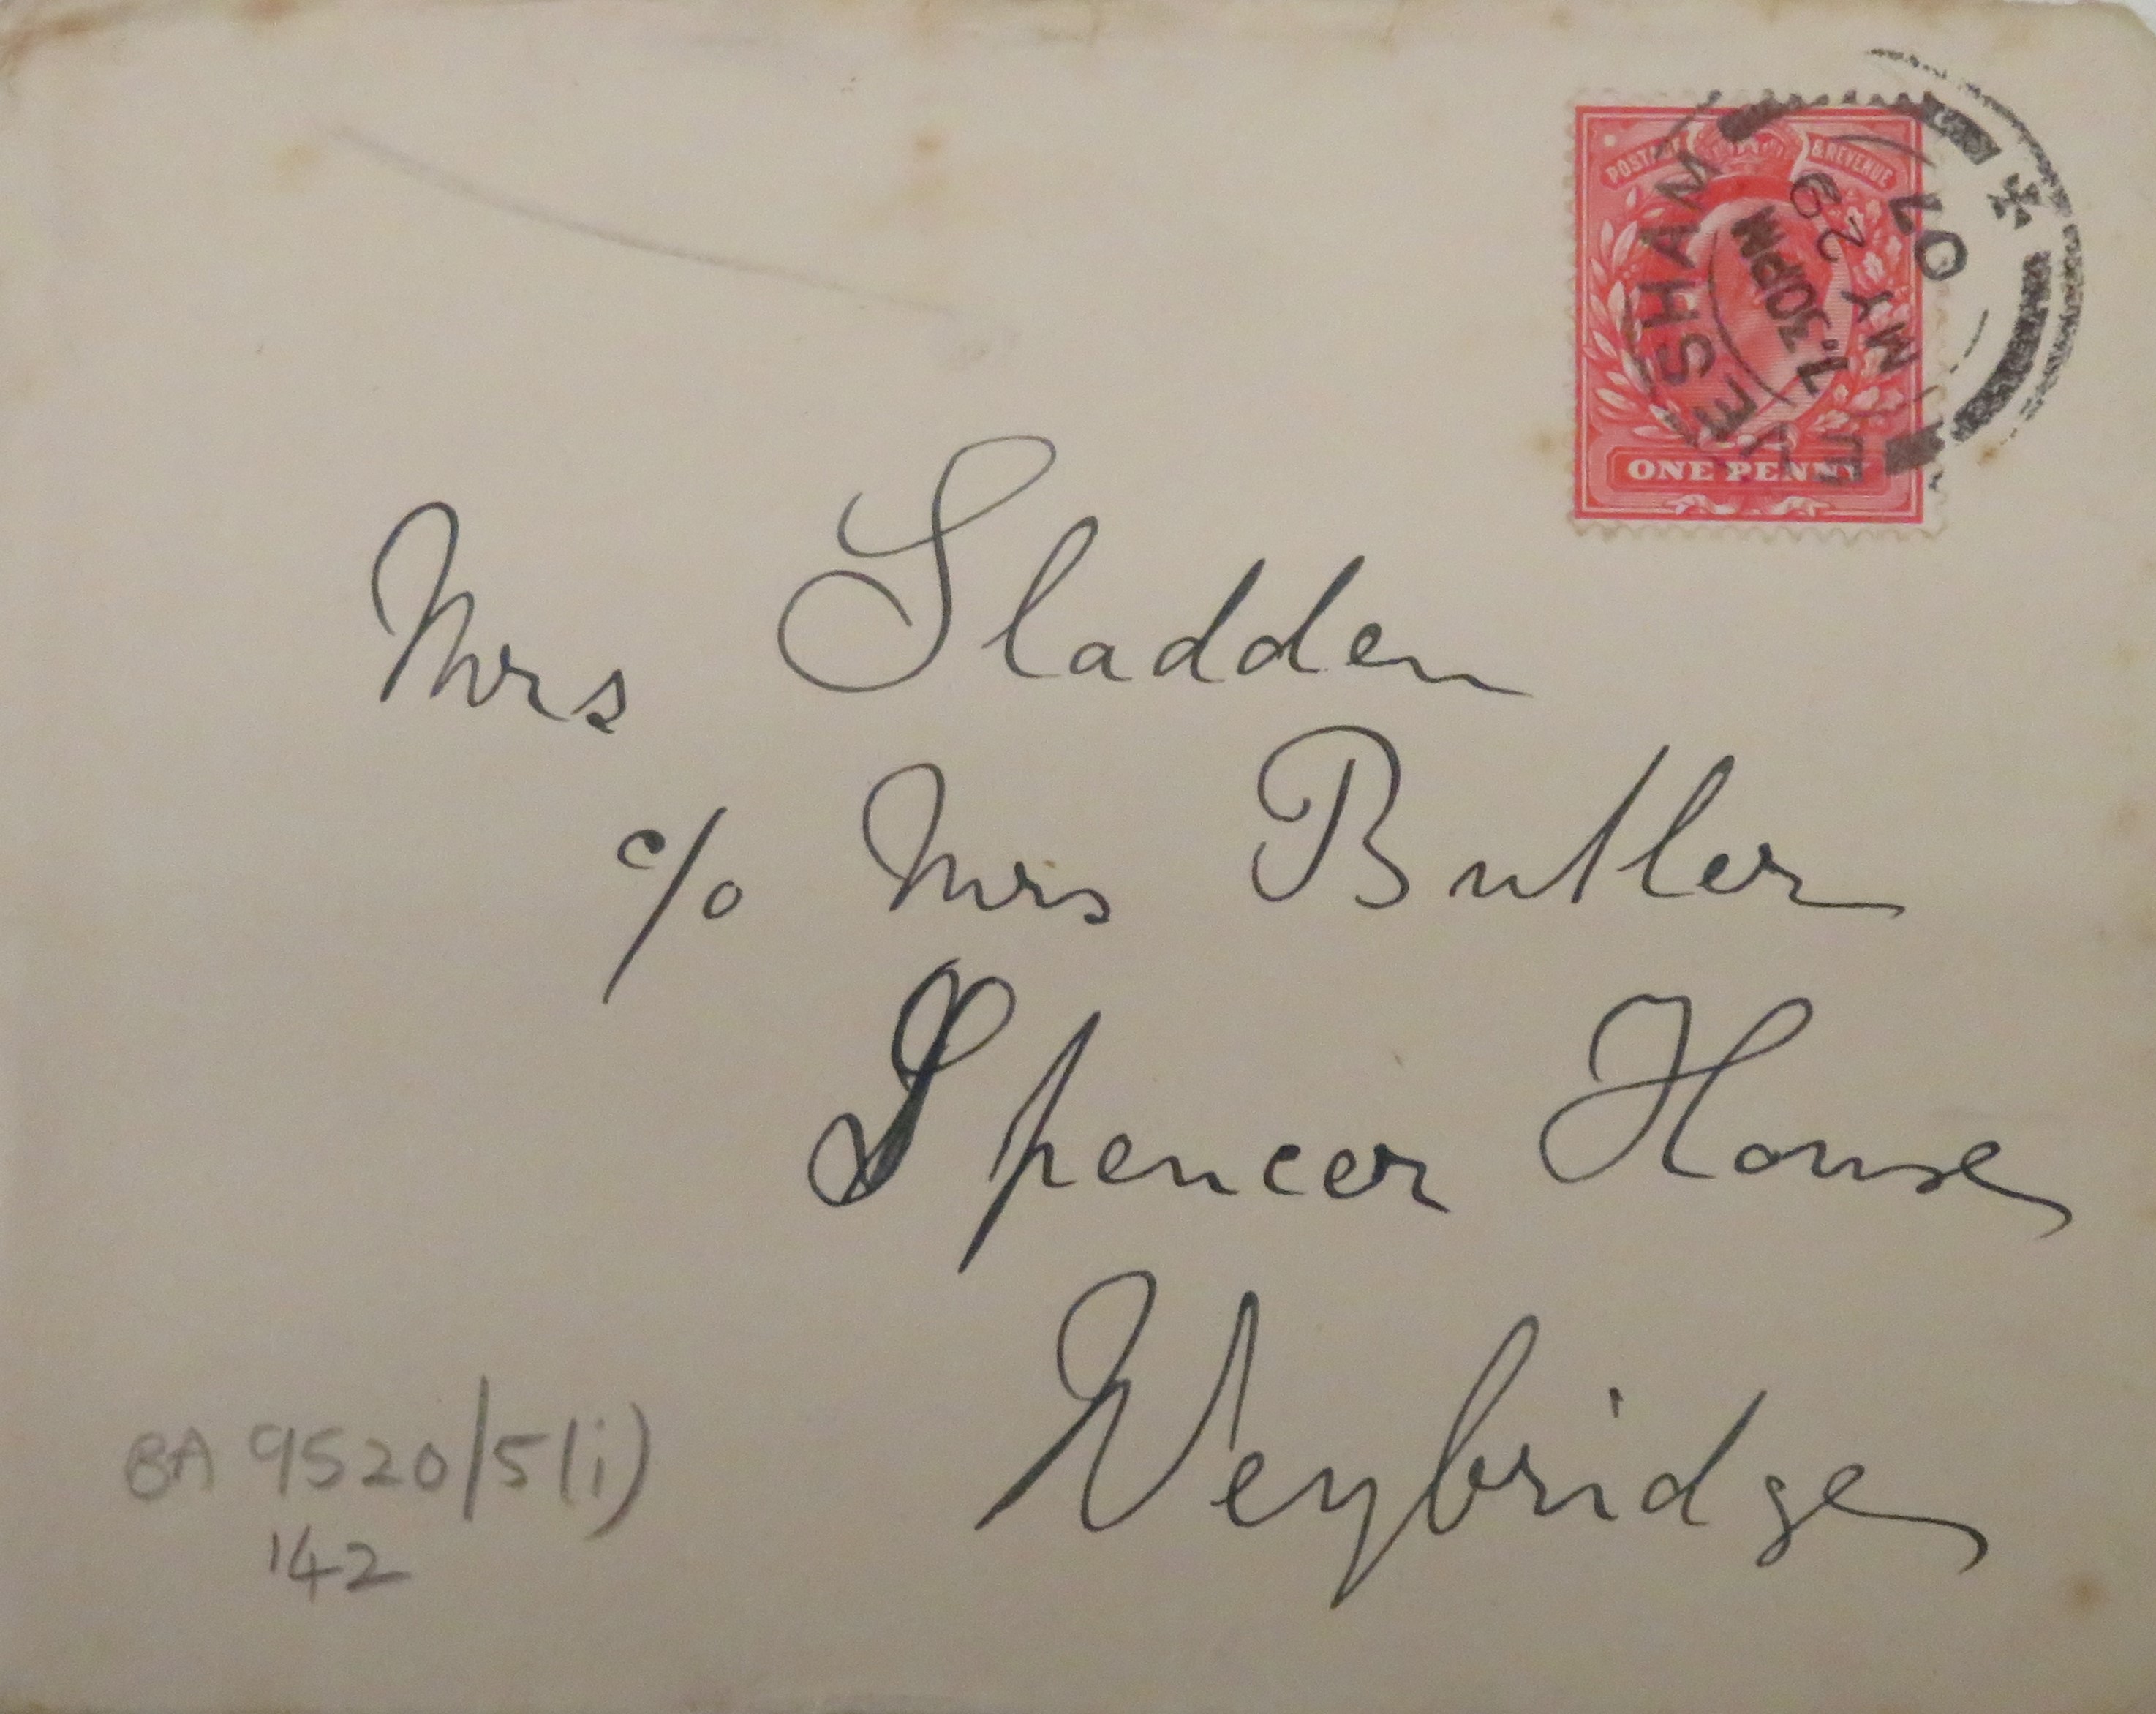 POSTAGE & REVENUE
EVESHAM
7.30PM
MY 29
07
ONE PENNY
Mrs Sladden
c/o Mrs Butler
Spencer House
Weybridge
BA 9520/5(i)
142